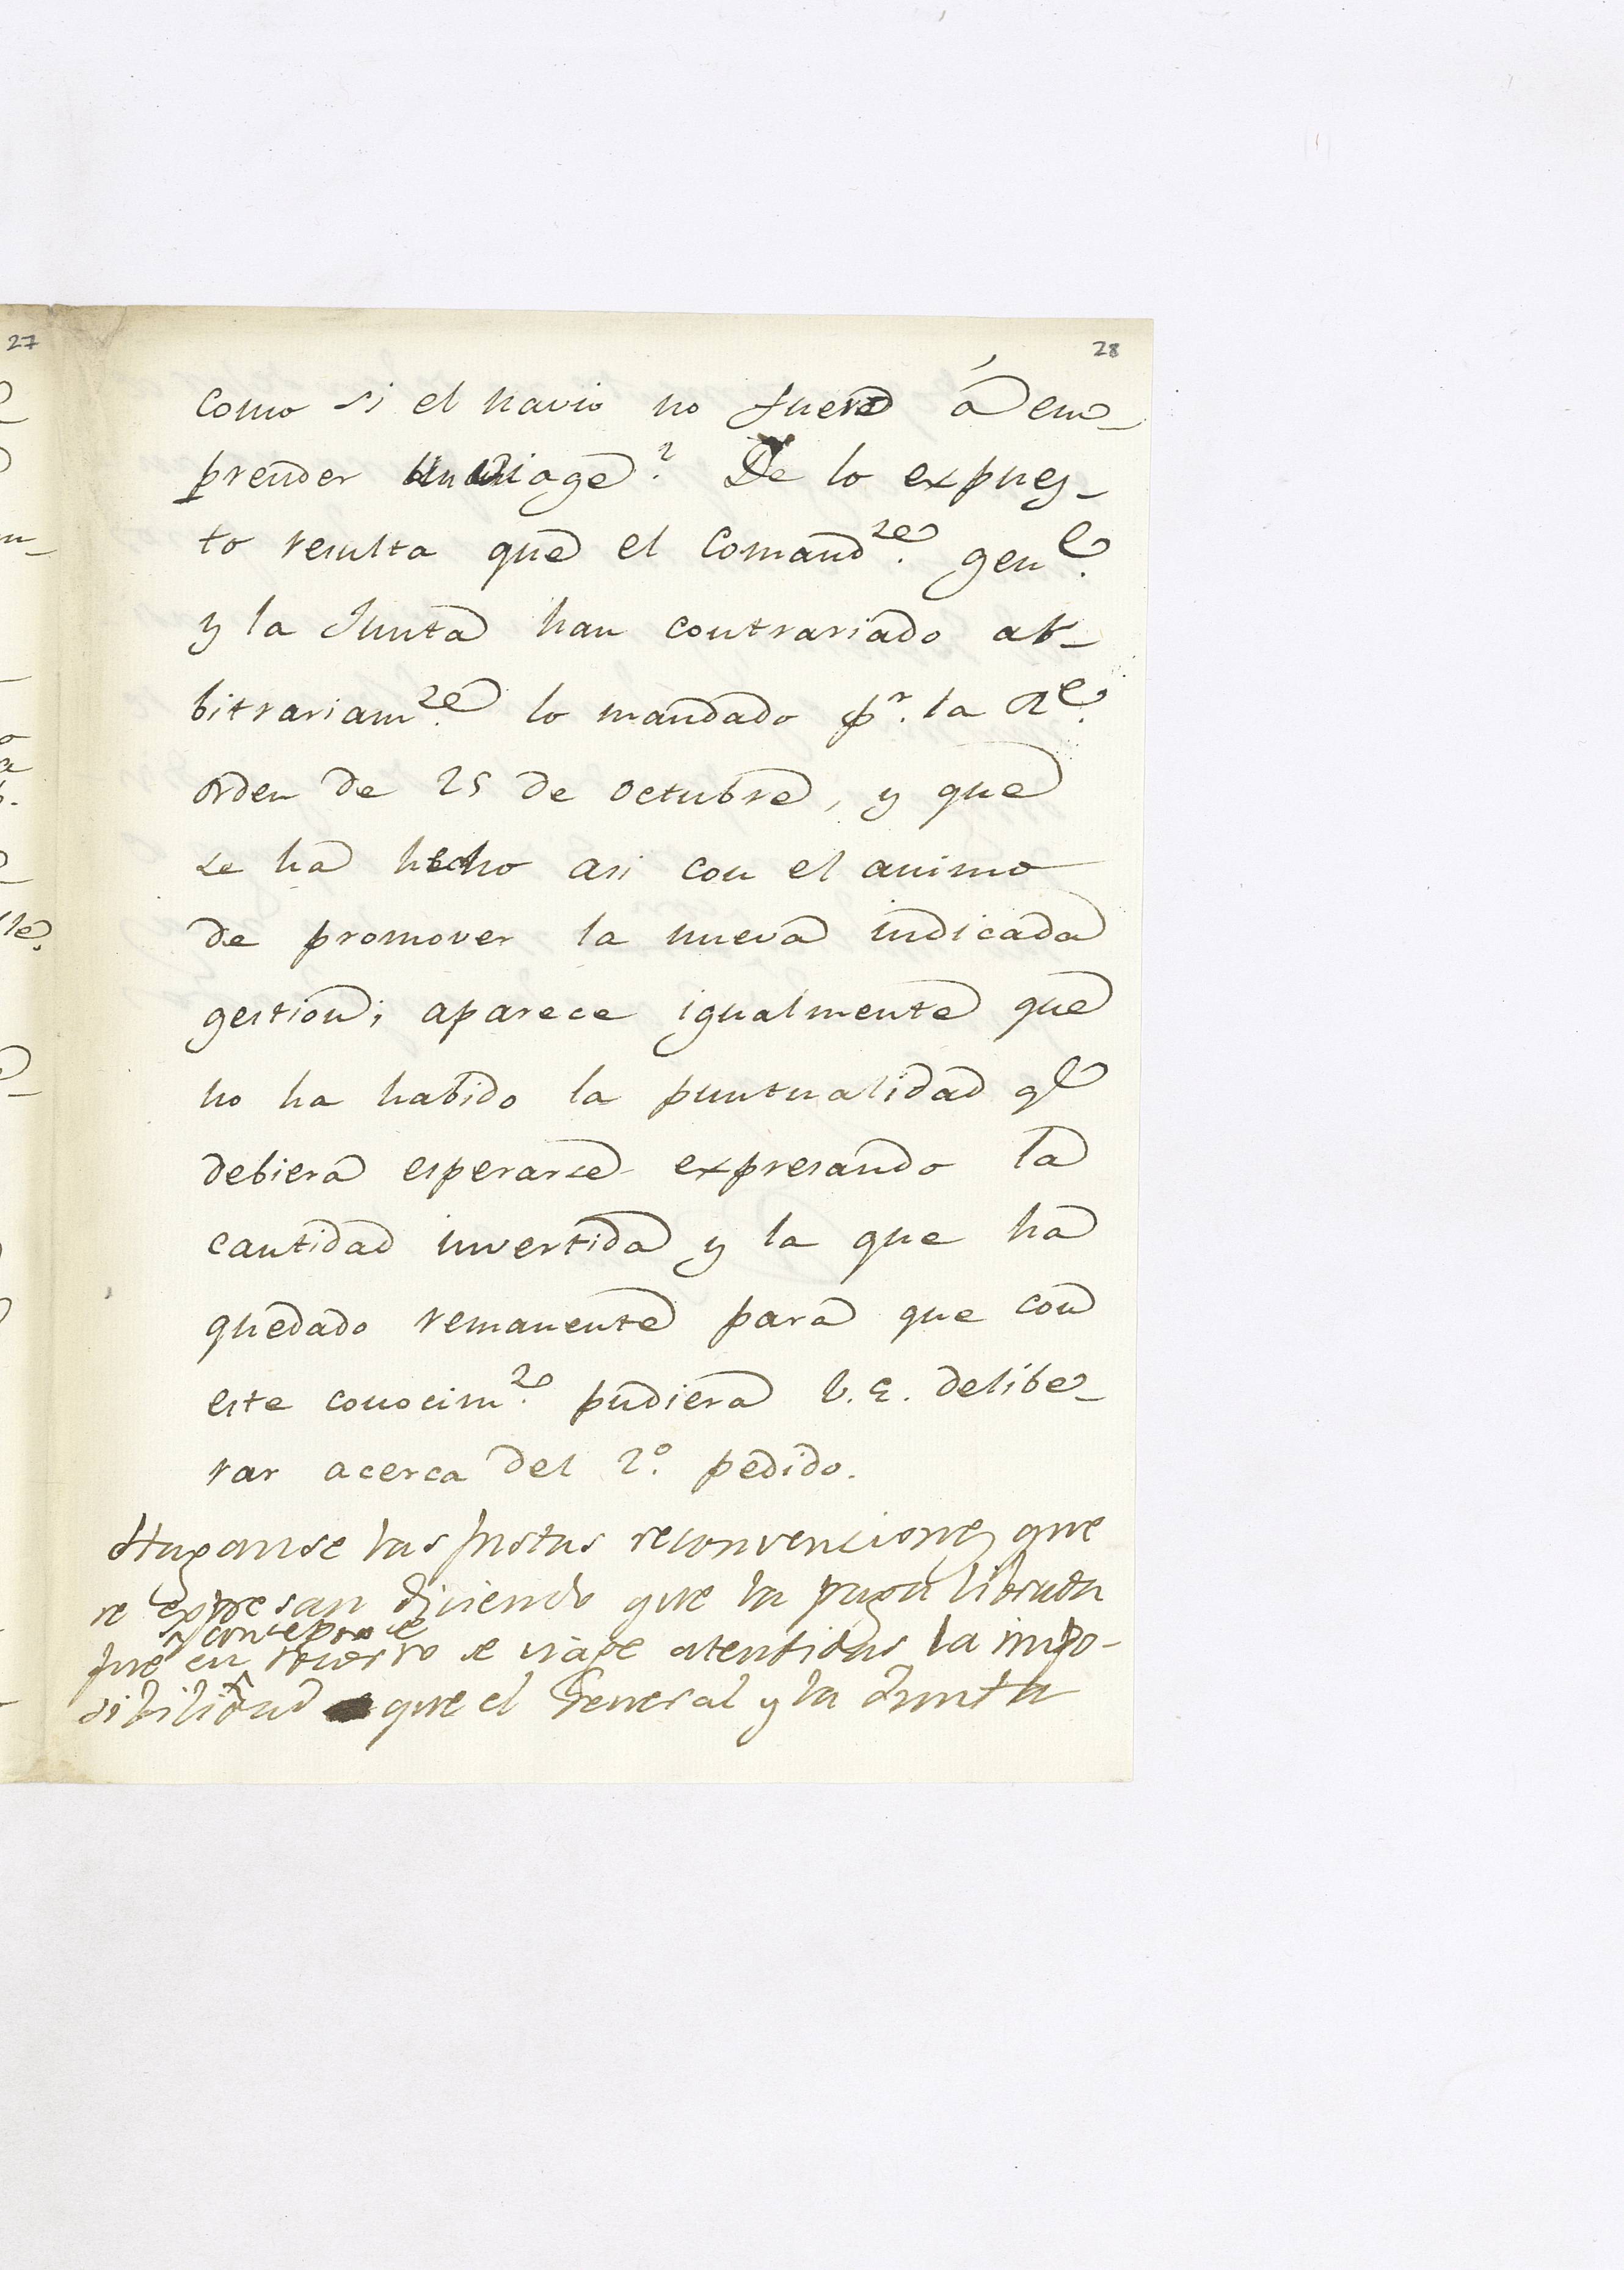 27
28
como si el navio no fuera á em-
prender un viage? De lo expues-
to resulta que el Comand.te gen.l
y la Junta han contrariado ar-
bitrariam.te lo mandado p.r la R.l
orden de 25 de octubre, y que
se ha hecho asi con el animo
de promover la nueva indicada
gestion; aparece igualmente que
no ha habido la puntualidad q.e
debiera esperarse expresando la
cantidad invertida y la que ha
quedado remanente para que con
este conocim.to pudiera V.E. delibe-
rar acerca del 2.o pedido.
Haganse las justas reconvenciones que
se expresan diciendo que la paga librada
fue en concepto de
se viage atendidas la impo-
sibilidad que el General y la Junta